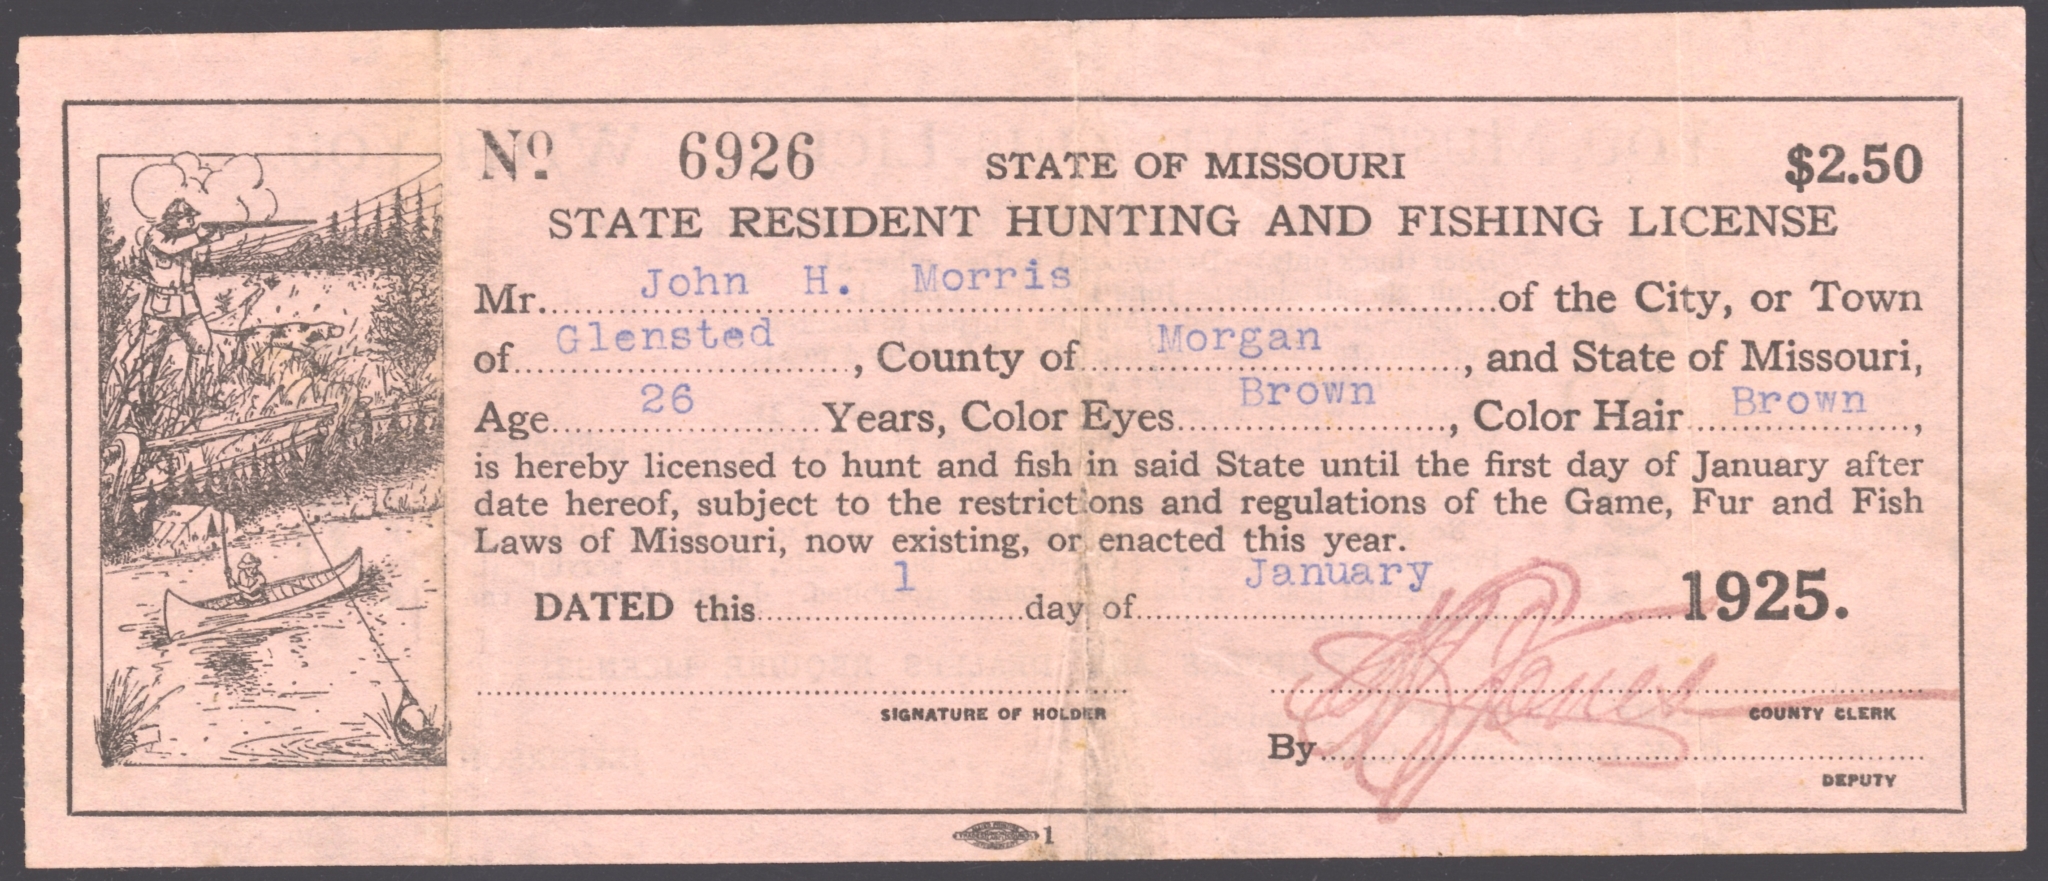 No. 6926 STATE OF MISSOURI $2.50
STATE RESIDENT HUNTING AND FISHING LICENSE
Mr. John H. Morris of the City, or Town
of Glensted, County of Morgan, and State of Missouri,
Age 26 Years, Color Eyes Brown, Color Hair Brown,
is hereby licensed to hunt and fish in said State until the first day of January after
date hereof, subject to the restrictions and regulations of the Game, Fur and Fish
Laws of Missouri, now existing, or enacted this year.
DATED this 1 day of January 1925.
Jones
SIGNATURE OF HOLDER COUNTY CLERK
By
DEPUTY
1